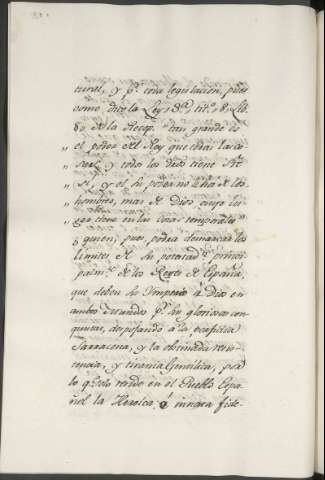 tural, y pr. toda legislacion, pues
como dice la Ley 3ª, titº. 8, Lib.
de la Recop. "tan grande es
" el poder del Rey que todas las co
" sas y todo los dros tiene
" si, y el su poder no lo ha de los
" hombres, mas de Dios cuyo lu-
" gar tiene en las cosas temporales"
y quien pues podra demarcar los
limites de su potestad, princi
palmte. de los Reyes de España,
que deben su Imperio á Dios en
ambos Mundos pr. sus gloriosas con
quistas, despojando á la perfidia
Sarracena, y la obstinada resis-
tencia, y tirania Gentilica; por
lo q. solo reside en el Pueblo Espa
ñol la Heroica é innata fide-